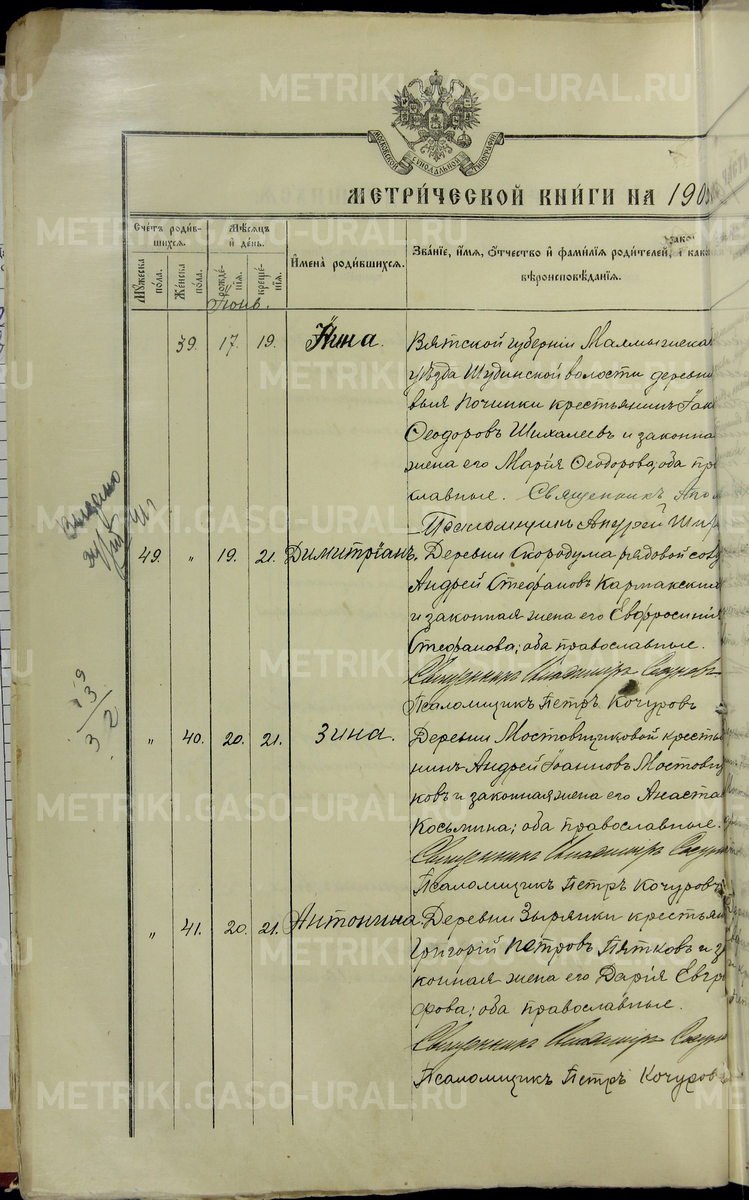 METRIKI.GASO-URAL.RU
МОСКОВСКОЙ СѴНОДАЛЬНОЙ ТИПОГРАФІИ
МЕТРИ́ЧЕСКОЙ КНИ́ГИ НА 190
Счетъ роди́в-
шихся.
Мѣсяцъ
и҆ де́нь.
Му́жеска
по́ла.
Же́нска
по́ла.
рожде́-
нія.
креще́-
нія.
И҆мена̀ роди́вшихся.
Зва́нїе, и҆́мя, о҆́тчество и҆ фами́лїя роди́телей, и҆ како
вѣроисповѣ́данїя.
Іюнь.
39. 17. 19. Нина. Вятской губерніи Малмыжска
уѣзда Шудинской волости деревн
Починки крестьянинъ Іак
Ѳеодоровъ Шихалеевъ и законна
жена его Марія Ѳеодорова; оба пр
славные. Священникъ
Псаломщикъ Андрей
49. „ 19. 21. Димитріанъ. Деревни Скородума рядовой
Андрей Стефановъ Кармакских
и законная жена его Евфросинія
Стефанова; оба православные.
Священникъ Владиміръ
Псаломщикъ Петръ Кочуровъ
„ 40. 20. 21. Зина. Деревни Мостовщиковой кресть
нинъ Андрей Іоанновъ Мостовщ
ковъ и законная жена его Анаста
Косьмина; оба православные.
Священникъ Владиміръ
Псаломщикъ Петръ Кочуровъ
„ 41. 20. 21. Антонина Деревни Зырянки крестьян
Григорій Петровъ Пятковъ и з
конная жена его Дарія Евгр
фова; оба православные.
Священникъ Владиміръ
Псаломщикъ Петръ Кочуровъ